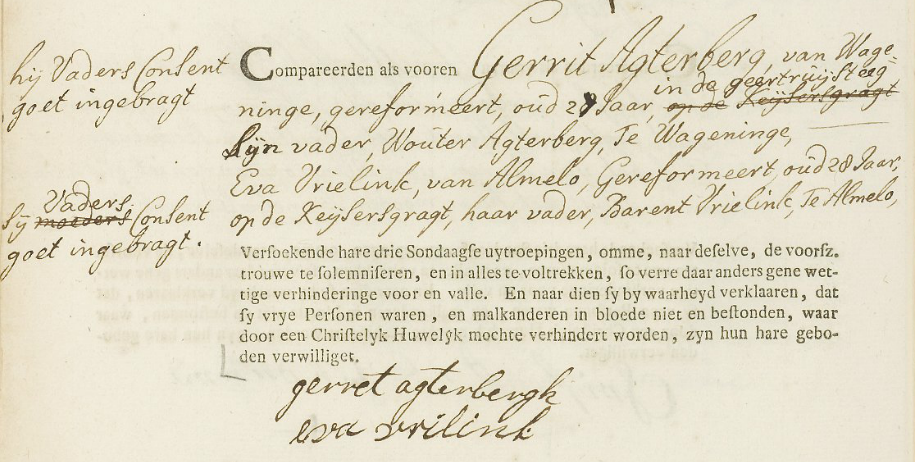 hij Vaders Consent
goet ingebragt
Compareerden als vooren Gerrit Agterberg, van Wage-
in de geertruijsteeg
ninge, gereformeert, oud 28 Jaar, op de Keijsersgragt
sijn vader, Wouter Agterberg, Te Wageninge,
Eva Vrielink, van Almelo, Gereformeert, oud 28 Jaar,
Vaders
sij moeders Consent
goet ingebragt.
op de Keijsersgragt, haar vader, Barent Vrielink, Te Almelo,
Verſoekende hare drie Sondaagſe uytroepingen, omme, naar deſelve, de voorſz.
trouwe te ſolemniſeren, en in alles te voltrekken, ſo verre daar anders gene wet-
tige verhinderinge voor en valle. En naar dien ſy by waarheyd verklaaren, dat
ſy vrye Perſonen waren, en malkanderen in bloede niet en beſtonden, waar
door een Chriſtelyk Huwelyk mochte verhindert worden, zyn hun hare gebo-
den verwilliget.
gerret agterbergh
eva vrilink